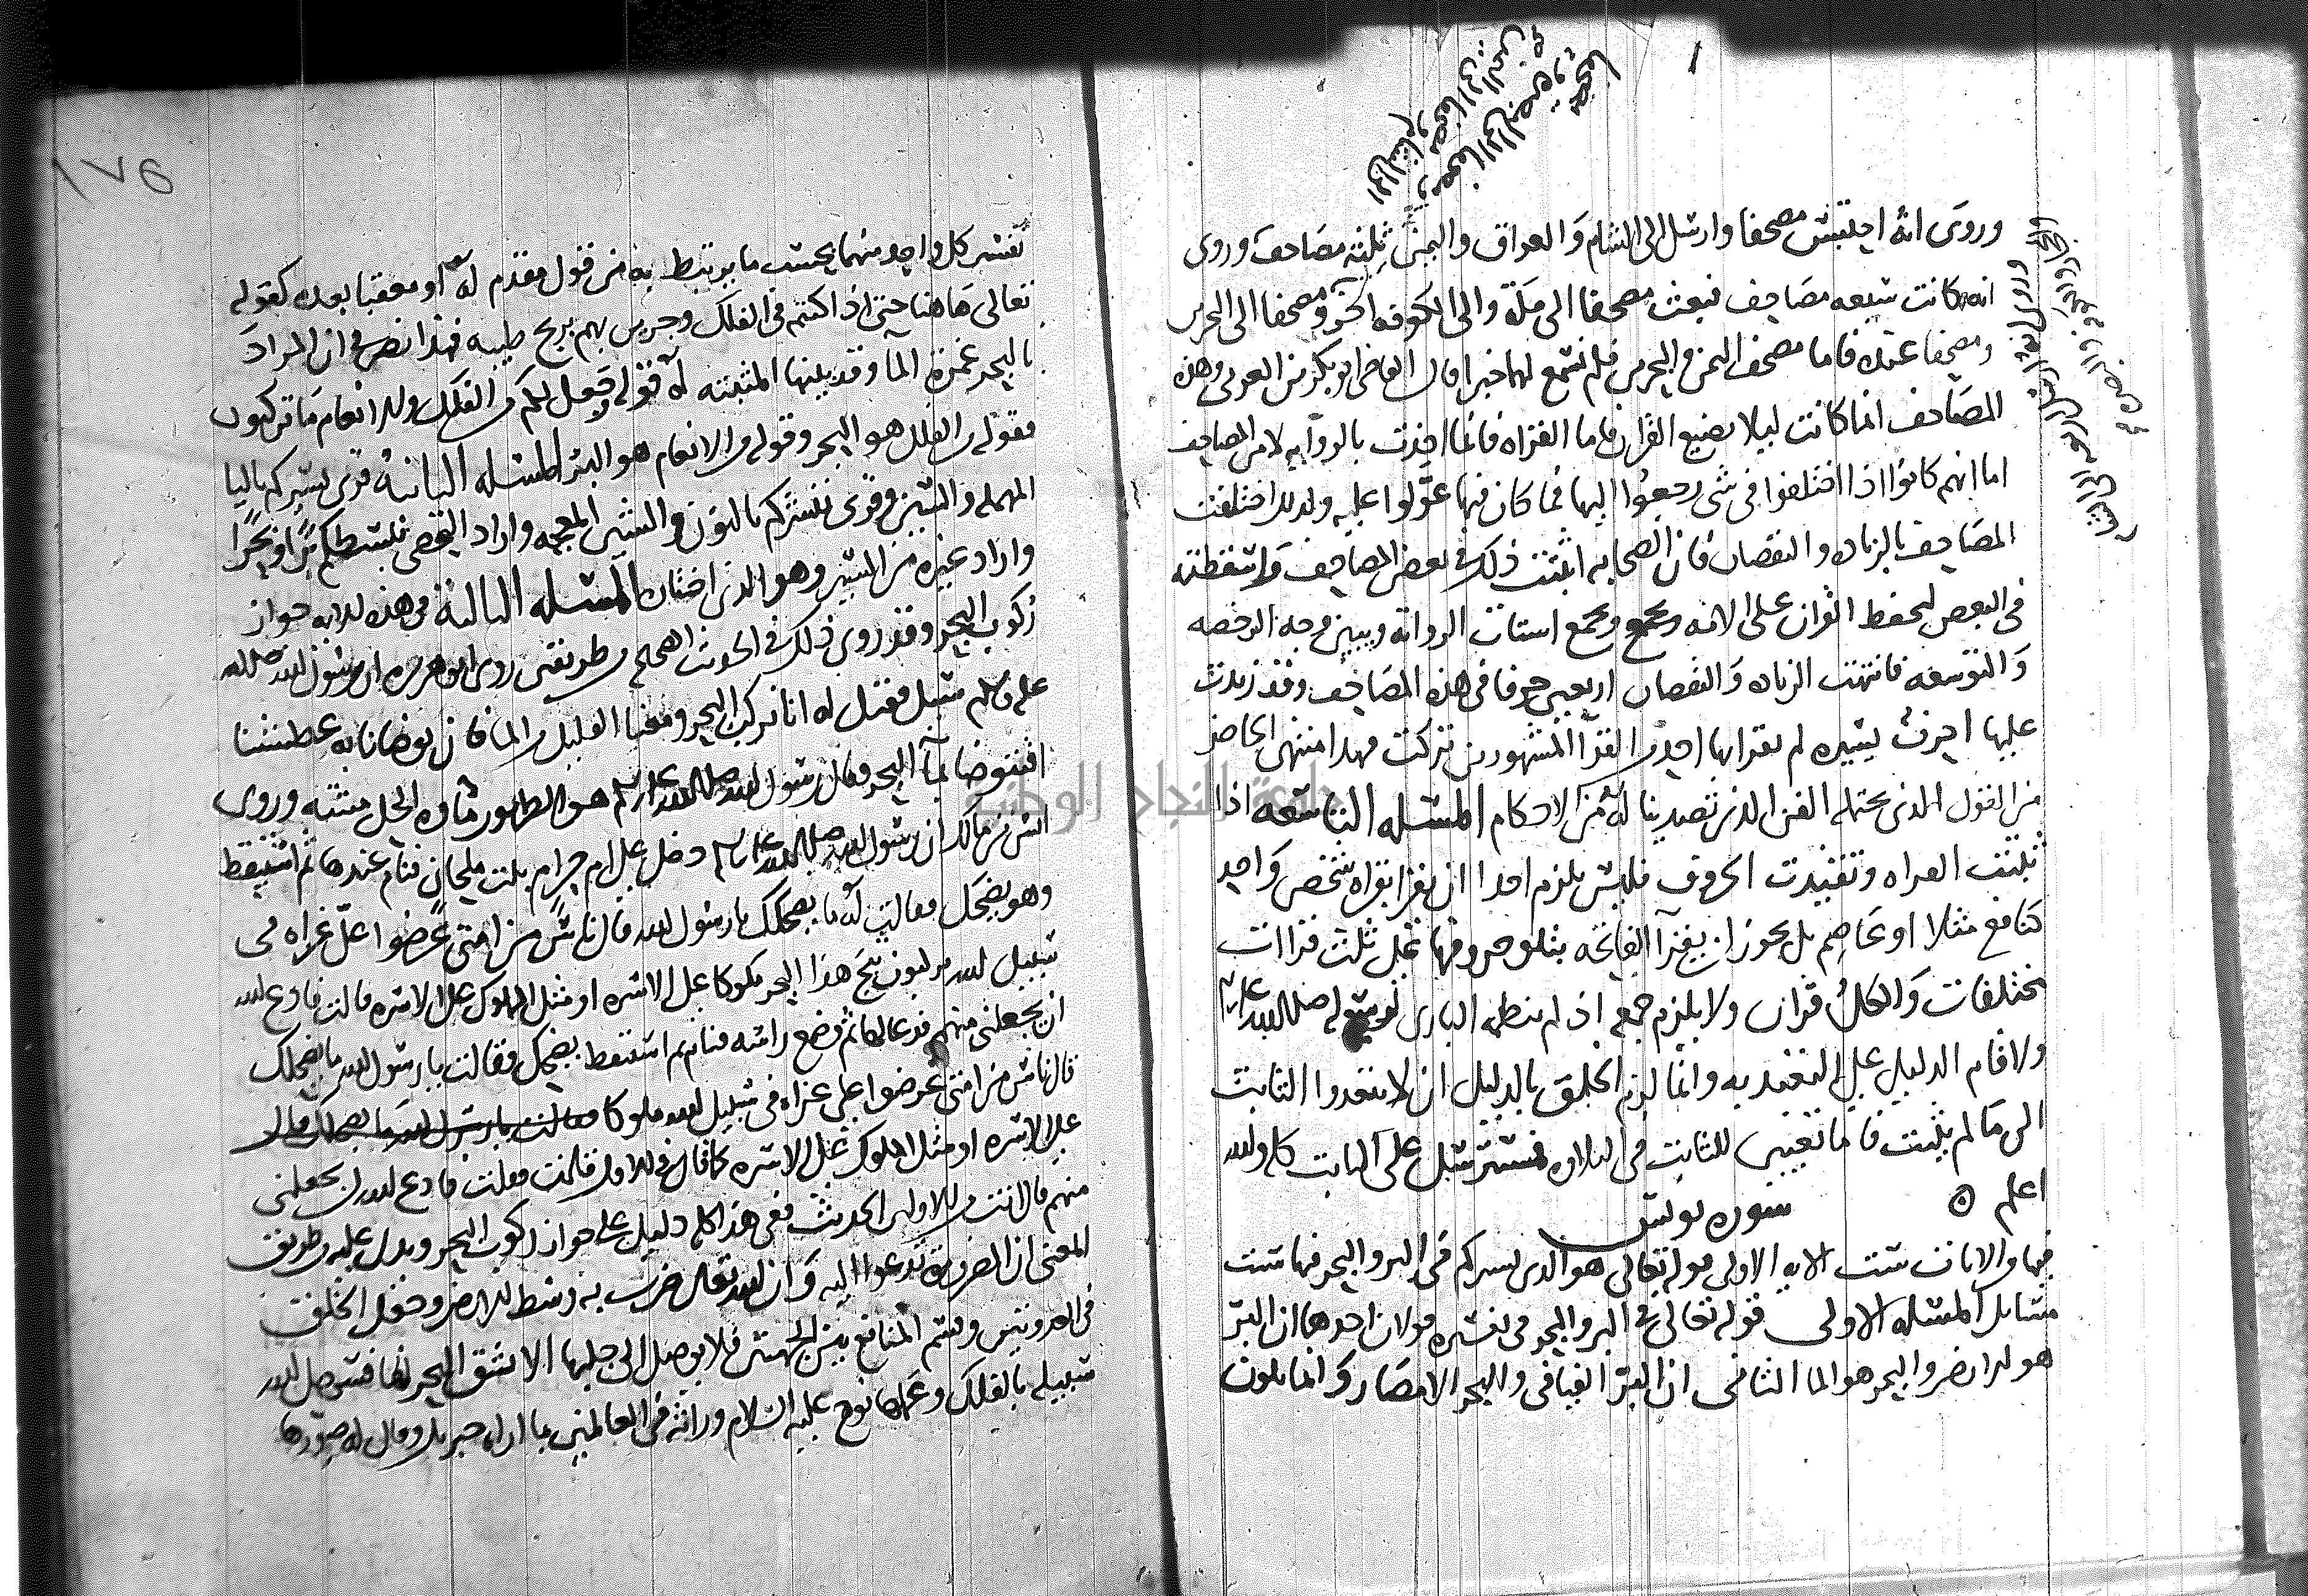 وروى انه احتبس مصحفا وارسل الى الشام والعراق واليمن ثلثة مصاحف وروى
انه كانت سبعه مصاحف فبعث مصحفا الى مكة والى الكوفه اخر ومصحفا الى البحرين
ومصحفا عنده فاما مصحف اليمن والبحرين فلم نسمع لهما خبرا قال القاضى ابو بكر بن العربى وهذه
المصاحف انما كانت ليلا يضيع القران فاما القراه فانما اخذت بالروايه لا من المصاحف
اما انهم كانوا اذا اختلفوا فى شى رجعوا اليها فما كان فيها عولوا عليه ولذلك اختلفت
المصاحف بالزياده والنقصان فان الصحابه اثبتت ذلك فى بعض المصاحف واسقطته
فى البعض ليحفظ القران على الامه وتجمع اشتات الروايه ويبين وجه الرخصه
والتوسعه فانتهت الزياده والنقصان اربعين حرفا فى هذه المصاحف وقد زيدت
عليها احرف يسيره لم يقرا بها احد من القرآ المشهورين تركت فهدا منتهى الحاضر
من القول الذى يحتمله الفن الذى تصدينا له من الاحكام المسله التاسعه اذا
ثبتت القراه وتقيدت الحروف فليس يلزم احدا ان يقرا بقراه شخص واحد
كنافع مثلا او عاصم بل يجوز ان يقرآ الفاتحه بتلو حروفها على ثلث قراات
مختلفات والكل قران ولا يلزم جمعه اذ لم ينظمه البارى لرسوله صلى الله عليه وسلم
ولا قام الدليل على التقيد به وانما لزم الخلق بالدليل ان لا يتعدوا الثابت
الى ما لم يثبت فاما تعيين للثابت فى التلاوه فمسترسل على الثابت كله والله
اعلم ه
سوره يونس
فيها من الايات ست الايه الاولى قوله تعالى هو الذى يسيركم فى البر والبحر فيها ست
مسايل المسله الاولى قوله تعالى فى البر والبحر فى تفسيره قولان احدهما ان البر
هو الارض والبحر هو الما الثانى ان البر الفيافى والبحر الامصار وانما يكون
جامعة النجاح الوطنية
١٧٥
تفسير كل واحد منهما بحسب ما يرتبط به من قول مقدم له او معقبا بعده كقوله
تعالى هاهنا حتى اذا كنتم فى الفلك وجرين بهم بريح طيبه فهذا نص فى ان المراد
بالبحر غمرة المآ وقد بينها المثبته له قوله وجعل لكم من الفلك والانعام ما تركبون
فقوله من الفلك هو البحر وقوله والانعام هو البر المسله الثانية قرى يسيركم باليا
المهمله والسين وقرى ننشركم بالنون والشين المعجمه واراد القصى نبسطكم برا وبحرا
واراد غيره من السير وهو الذى اختار المسله الثالثة فى هذه الايه جواز
ركوب البحر وقد روى ذلك فى الحديث الصحيح من طريقين روى ابو هريره ان رسول الله صلى الله
عليه وسلم سيل فقيل له انا نركب البحر ومعنا القليل من الما فان توضانا به عطشنا
افنتوضا بمآ البحر فقال رسول الله صلى الله عليه وسلم هو الطهور ماوه الحل ميتته وروى
انس بن مالك ان رسول الله صلى الله عليه وسلم دخل على ام حرام بنت ملحان فنام عندها ثم استيقظ
وهو يضحك فقالت له ما يضحكك يا رسول الله قال ناس من امتى عرضوا على غزاه فى
سبيل الله يركبون ثبج هذا البحر ملوكا على الاسره او مثل الملوك على الاسره قالت فادع الله
ان يجعلنى منهم فدعا لها ثم وضع راسه فنام ثم استيقظ يضحك فقالت يا رسول الله ما يضحكك
قال ناس من امتى عرضوا على غزاه فى سبيل الله ملوكا فقالت يا رسول الله ما يضحكك قال
على الاسره او مثل الملوك على الاسره كما قال فى الاول قالت فقلت فادع الله ان يجعلنى
منهم قال انت من الاولين الحديث ففى هذا كله دليل على جواز ركوب البحر ويدل عليه من طريق
المعنى ان الضرورة تدعوا اليه فان الله تعالى ضرب به وسط الارض وجعل الخلق
فى العدوتين وقسم المنافع بين الجهتين فلا يوصل الى جلبها الا بشق البحر لها فسهل الله
سبيله بالفلك وعلمها نوح عليه السلام وراثه فى العالمين بما اراه جبريل وقال له صورها